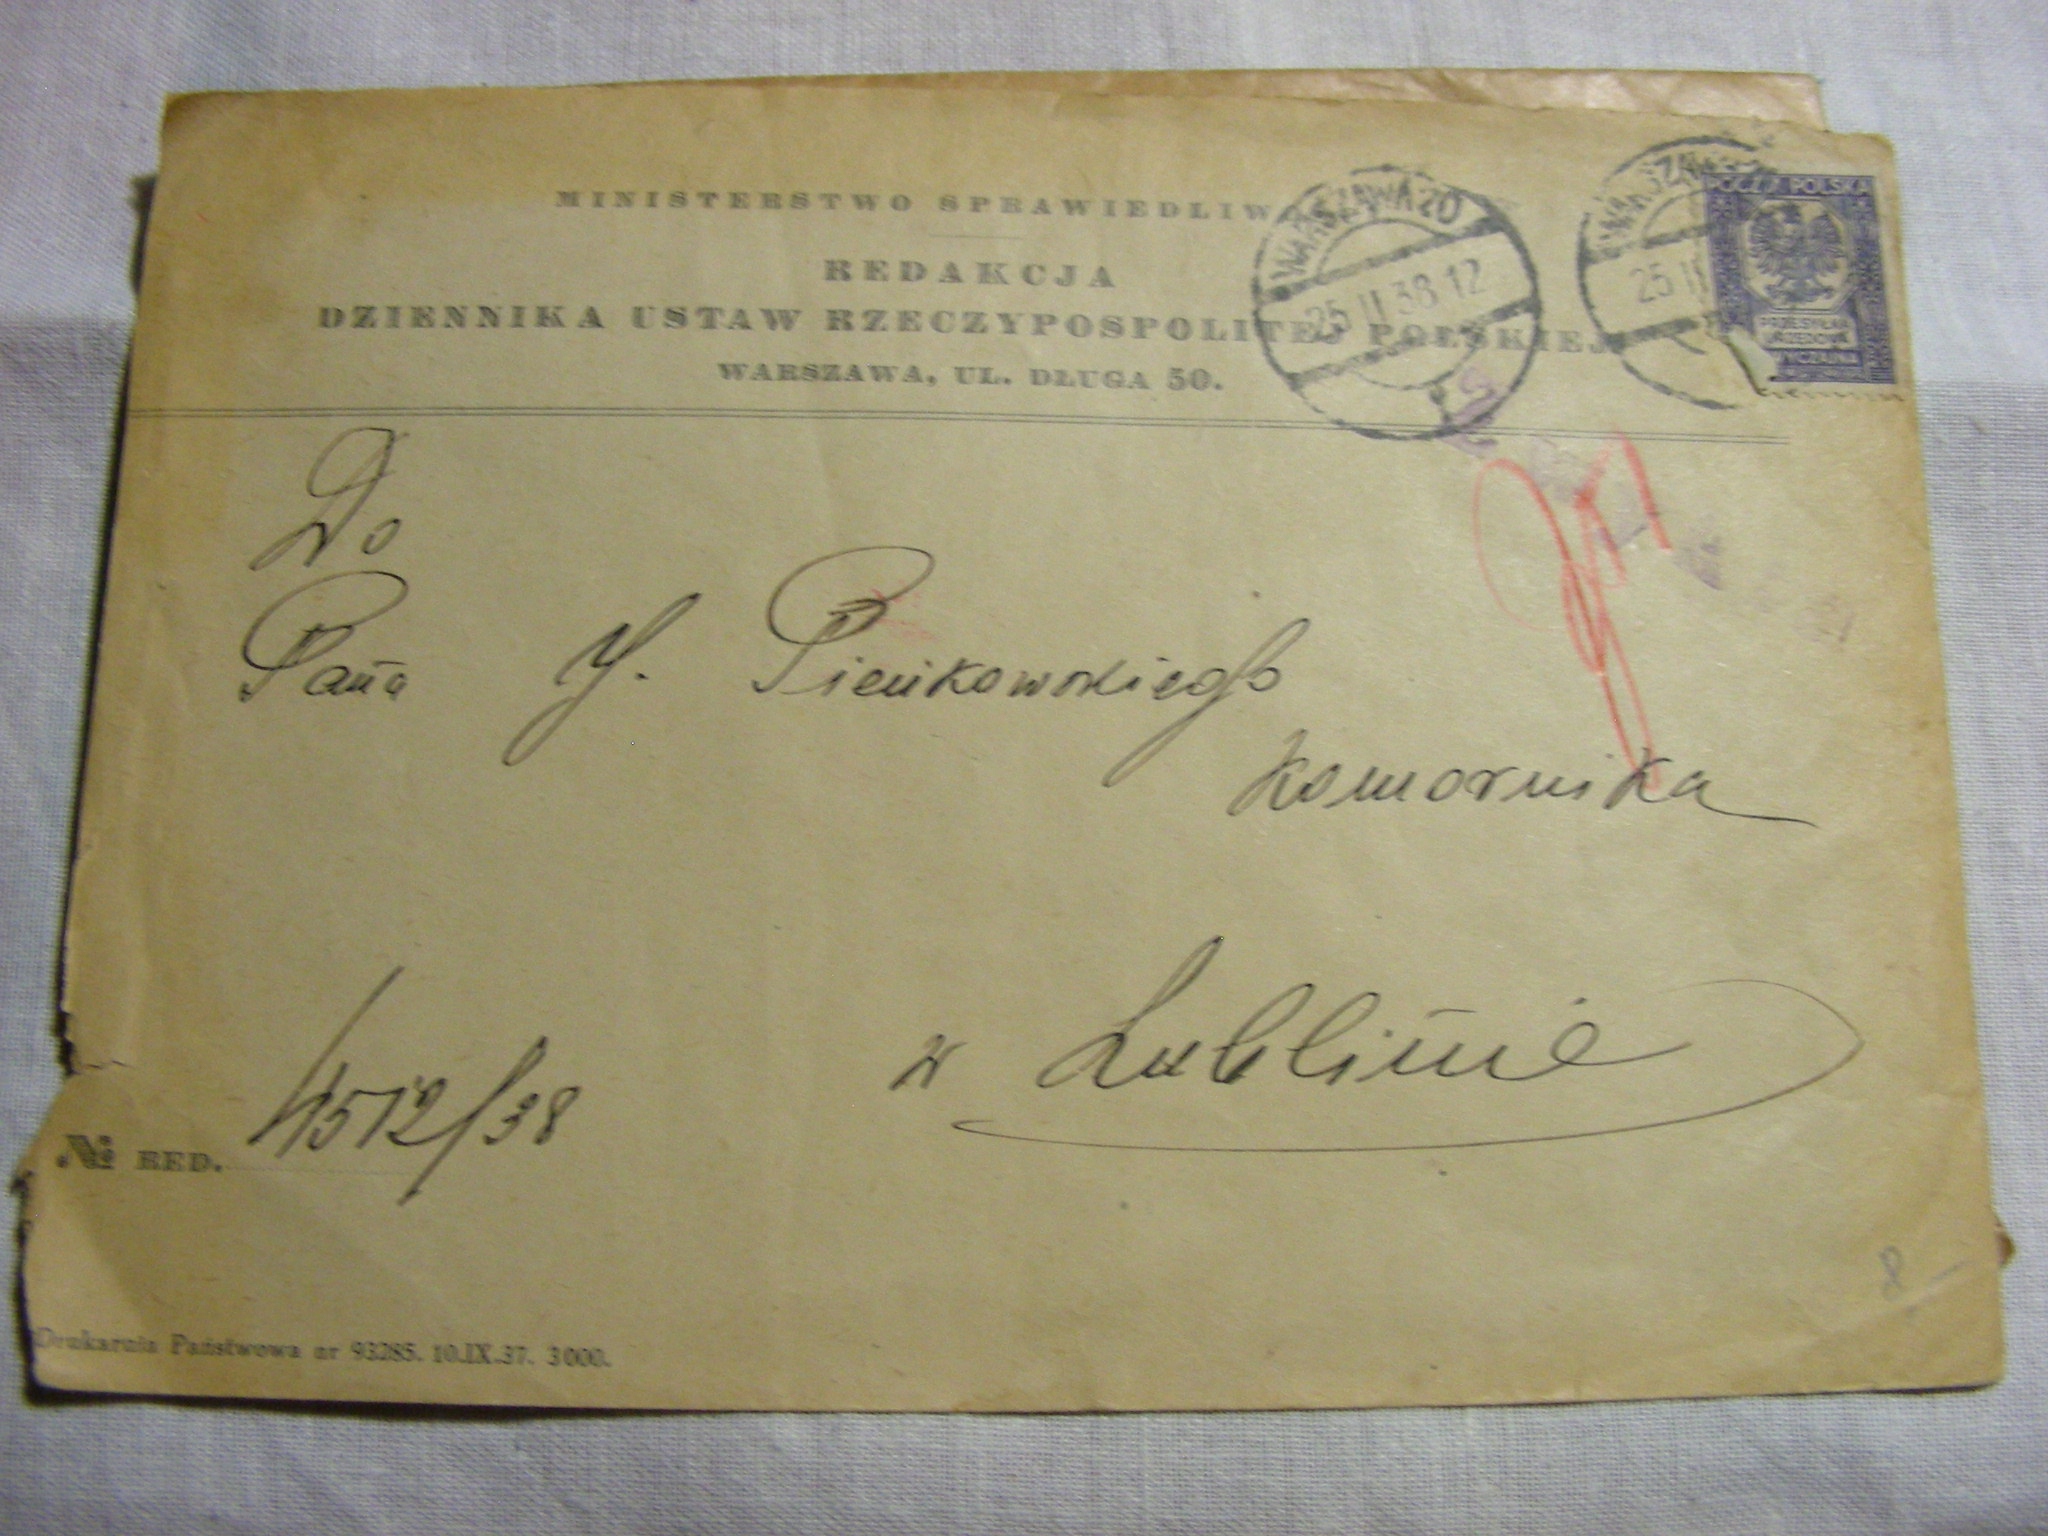 MINISTERSTWO SPRAWIEDLIW
REDAKCJA
DZIENNIKA USTAW RZECZYPOSPOLITEJ POLSKIEJ
WARSZAWA, UL. DŁUGA 50.
WARSZAWA 20
25 II 38 12
WARSZAWA
25 II
POCZTA POLSKA
PRZESYŁKA
URZĘDOWA
ZWYCZAJNA
Do
Pana J. Pieńkowskiego
Komornika
w Lublinie
№ RED. 4512/38
8
Drukarnia Państwowa nr 93285. 10.IX.37. 3000.